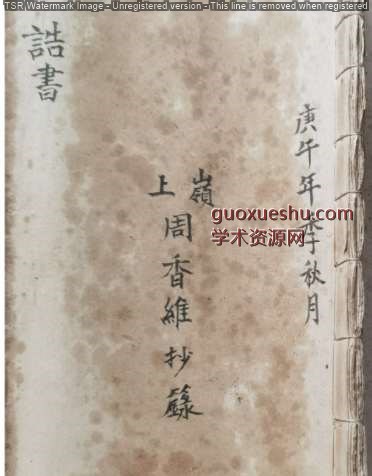 TSR Watermark Image - Unregistered version - This line is removed when registered
庚午年季秋月
嶺上
周香維抄錄
誥書
guoxueshu.com
学术资源网